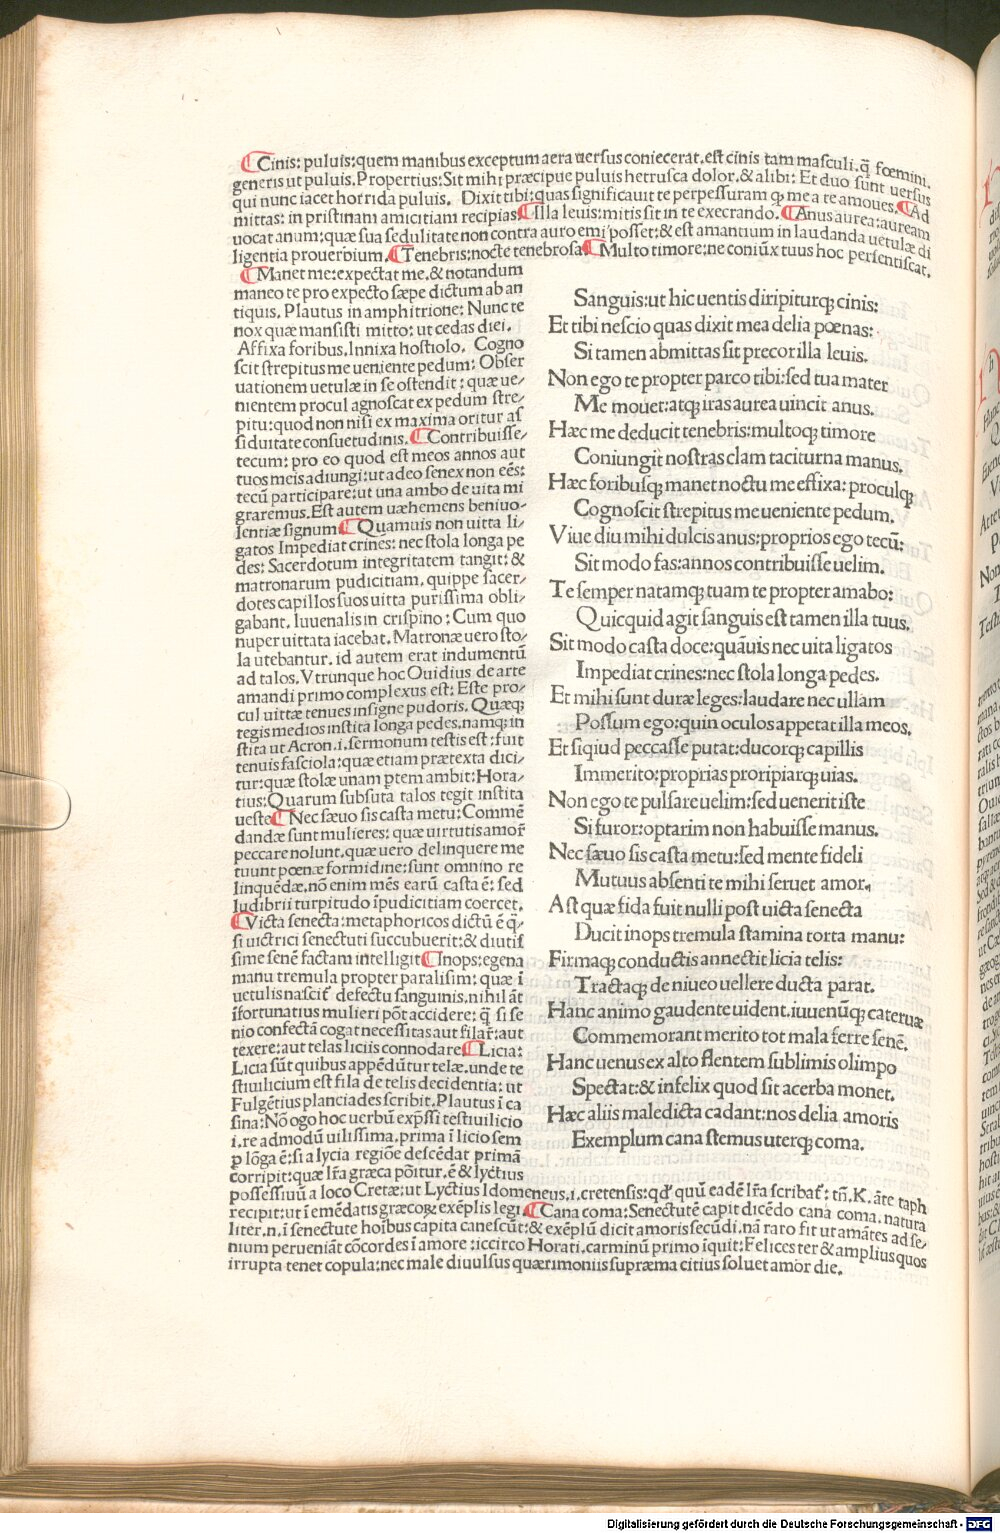 Cinis: puluis: quem manibus exceptum aera uersus coniecerat. est cinis tam masculi. q̃ fœmini.
generis ut puluis. Propertius: Sit mihi præcipue puluis hetrusca dolor. & alibi: Et duo sunt uersus
qui nunc iacet horrida puluis. Dixit tibi: quas significauit te perpessuram ꝙ me a te amoues. Ad
mittas: in pristinam amicitiam recipias. Illa leuis: mitis sit in te execrando. Anus aurea: auream
uocat anum: quæ sua sedulitate non contra auro emi posset: & est amantium in laudanda uetulæ di
ligentia prouerbium. Tenebris: nocte tenebrosa. Multo timore: ne coniũx tuus hoc persentiscat.
Manet me: expectat me. & notandum
maneo te pro expecto sæpe dictum ab an
tiquis. Plautus in amphitrione: Nunc te
nox quæ mansisti mitto: ut cedas diei.
Affixa foribus. Innixa hostiolo. Cogno
scit strepitus me ueniente pedum: Obser
uationem uetulæ in se ostendit: quæ ue/
nientem procul agnoscat ex pedum stre/
pitu: quod non nisi ex maxima oritur as
siduitate consuetudinis. Contribuisse/
tecum: pro eo quod est meos annos aut
tuos meis adiungi: ut adeo senex non eẽs:
tecũ participare: ut una ambo de uita mi
graremus. Est autem uæhemens beniuo/
lentiæ signum. Quamuis non uitta li/
gatos Impediat crines: nec stola longa pe
des: Sacerdotum integritatem tangit: &
matronarum pudicitiam, quippe sacer/
dotes capillos suos uitta purissima obli/
gabant. Iuuenalis in crispino: Cum quo
nuper uittata iacebat. Matronæ uero sto/
la utebantur. id autem erat indumentũ
ad talos. Vtrunque hoc Ouidius de arte
amandi primo complexus est: Este pro/
cul uittæ tenues insigne pudoris. Quæqꝫ
tegis medios instita longa pedes. namqꝫ in
stita ut Acron. i. sermonum testis est: fuit
tenuis fasciola: quæ etiam prætexta dici/
tur: quæ stolæ unam ptem ambit: Hora/
tius: Quarum subsuta talos tegit instita
ueste. Nec sæuo sis casta metu: Commẽ
dandæ sunt mulieres: quæ uirtutis amor̃
peccare nolunt. quæ uero delinquere me
tuunt pœnæ formidine: sunt omnino re
linquẽdæ. nõ enim mẽs earũ casta ẽ: sed
ludibrii turpitudo ĩpudicitiam coercet.
Victa senecta: metaphoricos dictũ ẽ q̃/
si uictrici senectuti succubuerit: & diutis
sime senẽ factam intelligit. Inops: egena
manu tremula propter paralisim: quæ ĩ
uetulis nascit̃ defectu sanguinis. nihil ãt
ĩfortunatius mulieri põt accidere: q̃ si se
nio confectã cogat necessitas aut filar̃: aut
texere: aut telas liciis connodare. Licia:
Licia sũt quibus appẽdũtur telæ. unde te
stiuilicium est fila de telis decidentia: ut
Fulgẽtius planciades scribit. Plautus ĩ ca
sina: Nõ ogo hoc uerbũ exp̃ssi testiuilicio
i. re admodũ uilissima. prima ĩ licio sem
ꝑ lõga ẽ: si a lycia regiõe descẽdat primã
corripit: quæ lr̃a græca põitur. ẽ & lyctius
possessiuũ a loco Cretæ: ut Lyctius Idomeneus. i. cretensis: qđ quũ eadẽ lr̃a scribat̃: tñ. K. ãte taph
recipit: ut ĩ emẽdatis græcoꝝ exẽplis legi. Cana coma: Senectutẽ capit dicẽdo canã coma. natura
liter. n. ĩ senectute hoĩbus capita canescũt: & exẽplũ dicit amoris secũdi. nã rato fit ut amãtes ad se/
nium perueniãt cõcordes ĩ amore: iccirco Horati. carminũ primo ĩquit: Felices ter & amplius quos
irrupta tenet copula: nec male diuulsus quærimoniis supræma citius soluet amor die.
Sanguis: ut hic uentis diripiturqꝫ cinis:
Et tibi nescio quas dixit mea delia pœnas:
Si tamen abmittas sit precor illa leuis.
Non ego te propter parco tibi: sed tua mater
Me mouet: atqꝫ iras aurea uincit anus.
Hæc me deducit tenebris: multoqꝫ timore
Coniungit nostras clam taciturna manus.
Hæc foribusqꝫ manet noctu me effixa: proculqꝫ
Cognoscit strepitus me ueniente pedum.
Viue diu mihi dulcis anus: proprios ego tecũ:
Sit modo fas: annos contribuisse uelim.
Te semper natamqꝫ tuam te propter amabo:
Quicquid agit sanguis est tamen illa tuus.
Sit modo casta doce: quãuis nec uita ligatos
Impediat crines: nec stola longa pedes.
Et mihi sunt duræ leges: laudare nec ullam
Possum ego: quin oculos appetat illa meos.
Et siqiud peccasse putat: ducorqꝫ capillis
Immerito: proprias proripiarqꝫ uias.
Non ego te pulsare uelim: sed uenerit iste
Si furor: optarim non habuisse manus.
Nec sæuo sis casta metu: sed mente fideli
Mutuus absenti te mihi seruet amor.
Ast quæ fida fuit nulli post uicta senecta
Ducit inops tremula stamina torta manu:
Firmaqꝫ conductis annectit licia telis:
Tractaqꝫ de niueo uellere ducta parat.
Hanc animo gaudente uident. iuuenũqꝫ cateruæ
Commemorant merito tot mala ferre senẽ.
Hanc uenus ex alto flentem sublimis olimpo
Spectat: & infelix quod sit acerba monet.
Hæc aliis maledicta cadant: nos delia amoris
Exemplum cana stemus uterqꝫ coma.
Digitalisierung gefördert durch die Deutsche Forschungsgemeinschaft - DFG